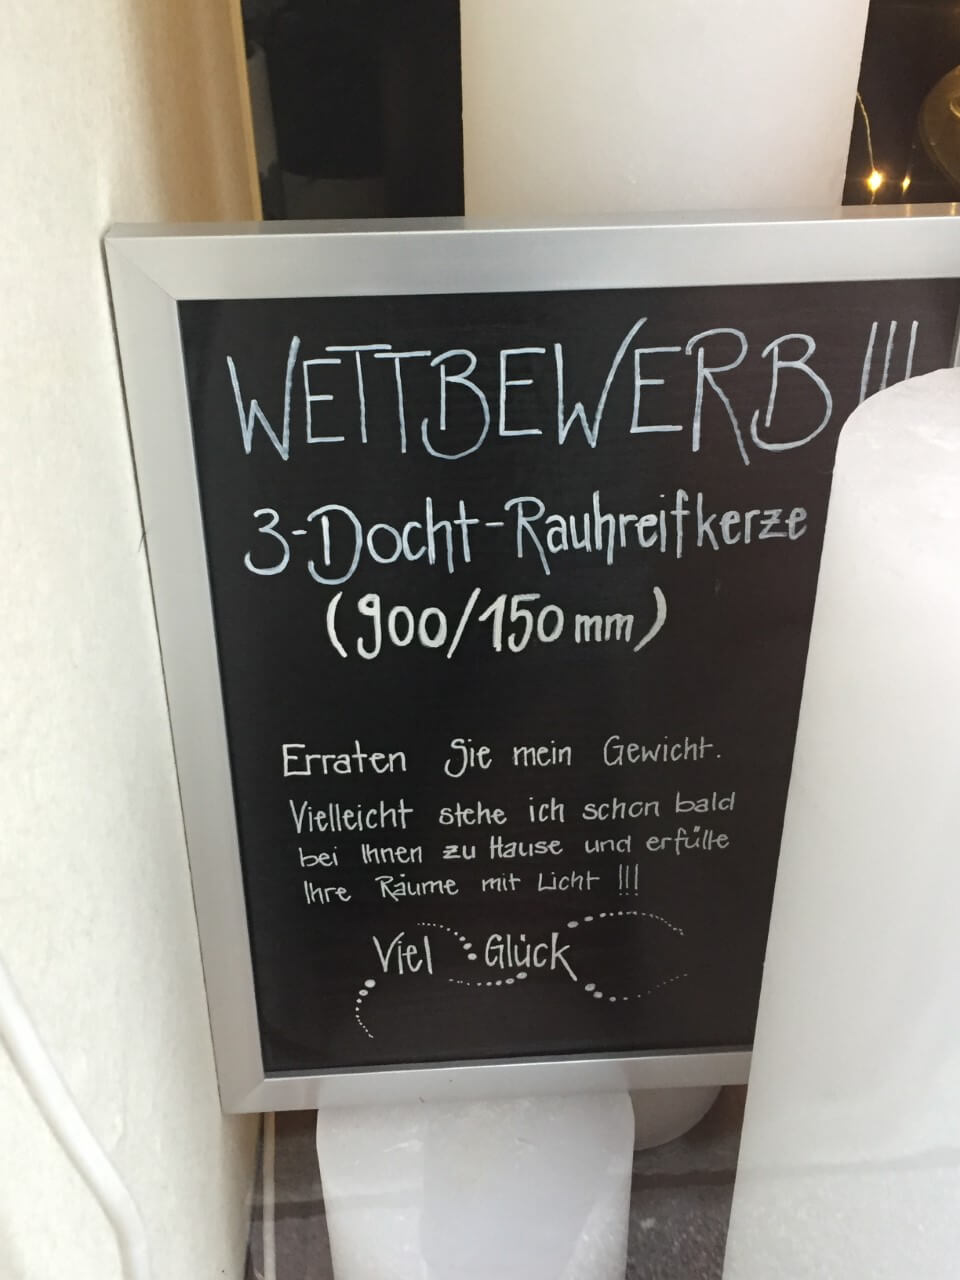 WETTBEWERB !!!
3-Docht-Rauhreifkerze
(900/150mm)
Erraten Sie mein Gewicht.
Vielleicht stehe ich schon bald
bei Ihnen zu Hause und erfülle
Ihre Räume mit Licht !!!
Viel Glück